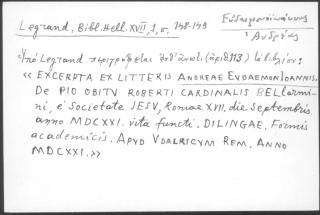 Legrand, Bibl. Hell. XVII, 1, σ. 148-149
Εὐδαιμονοϊωάννης
Ἀνδρέας
Ὑπὸ Legrand περιγράφεται (ἀριθ. 113) τὸ βιβλίον:
« EXCERPTA EX LITTERIS ANDREAE EVDAEMONIOANNIS,
DE PIO OBITV ROBERTI CARDINALIS BELlarmi-
ni, è Societate JESV, Romae XVII. die septembris
anno MDCXXI. vita functi. DILINGAE, Formis
academicis. APVD VDALRICVM REM. ANNO
MDCXXI. »